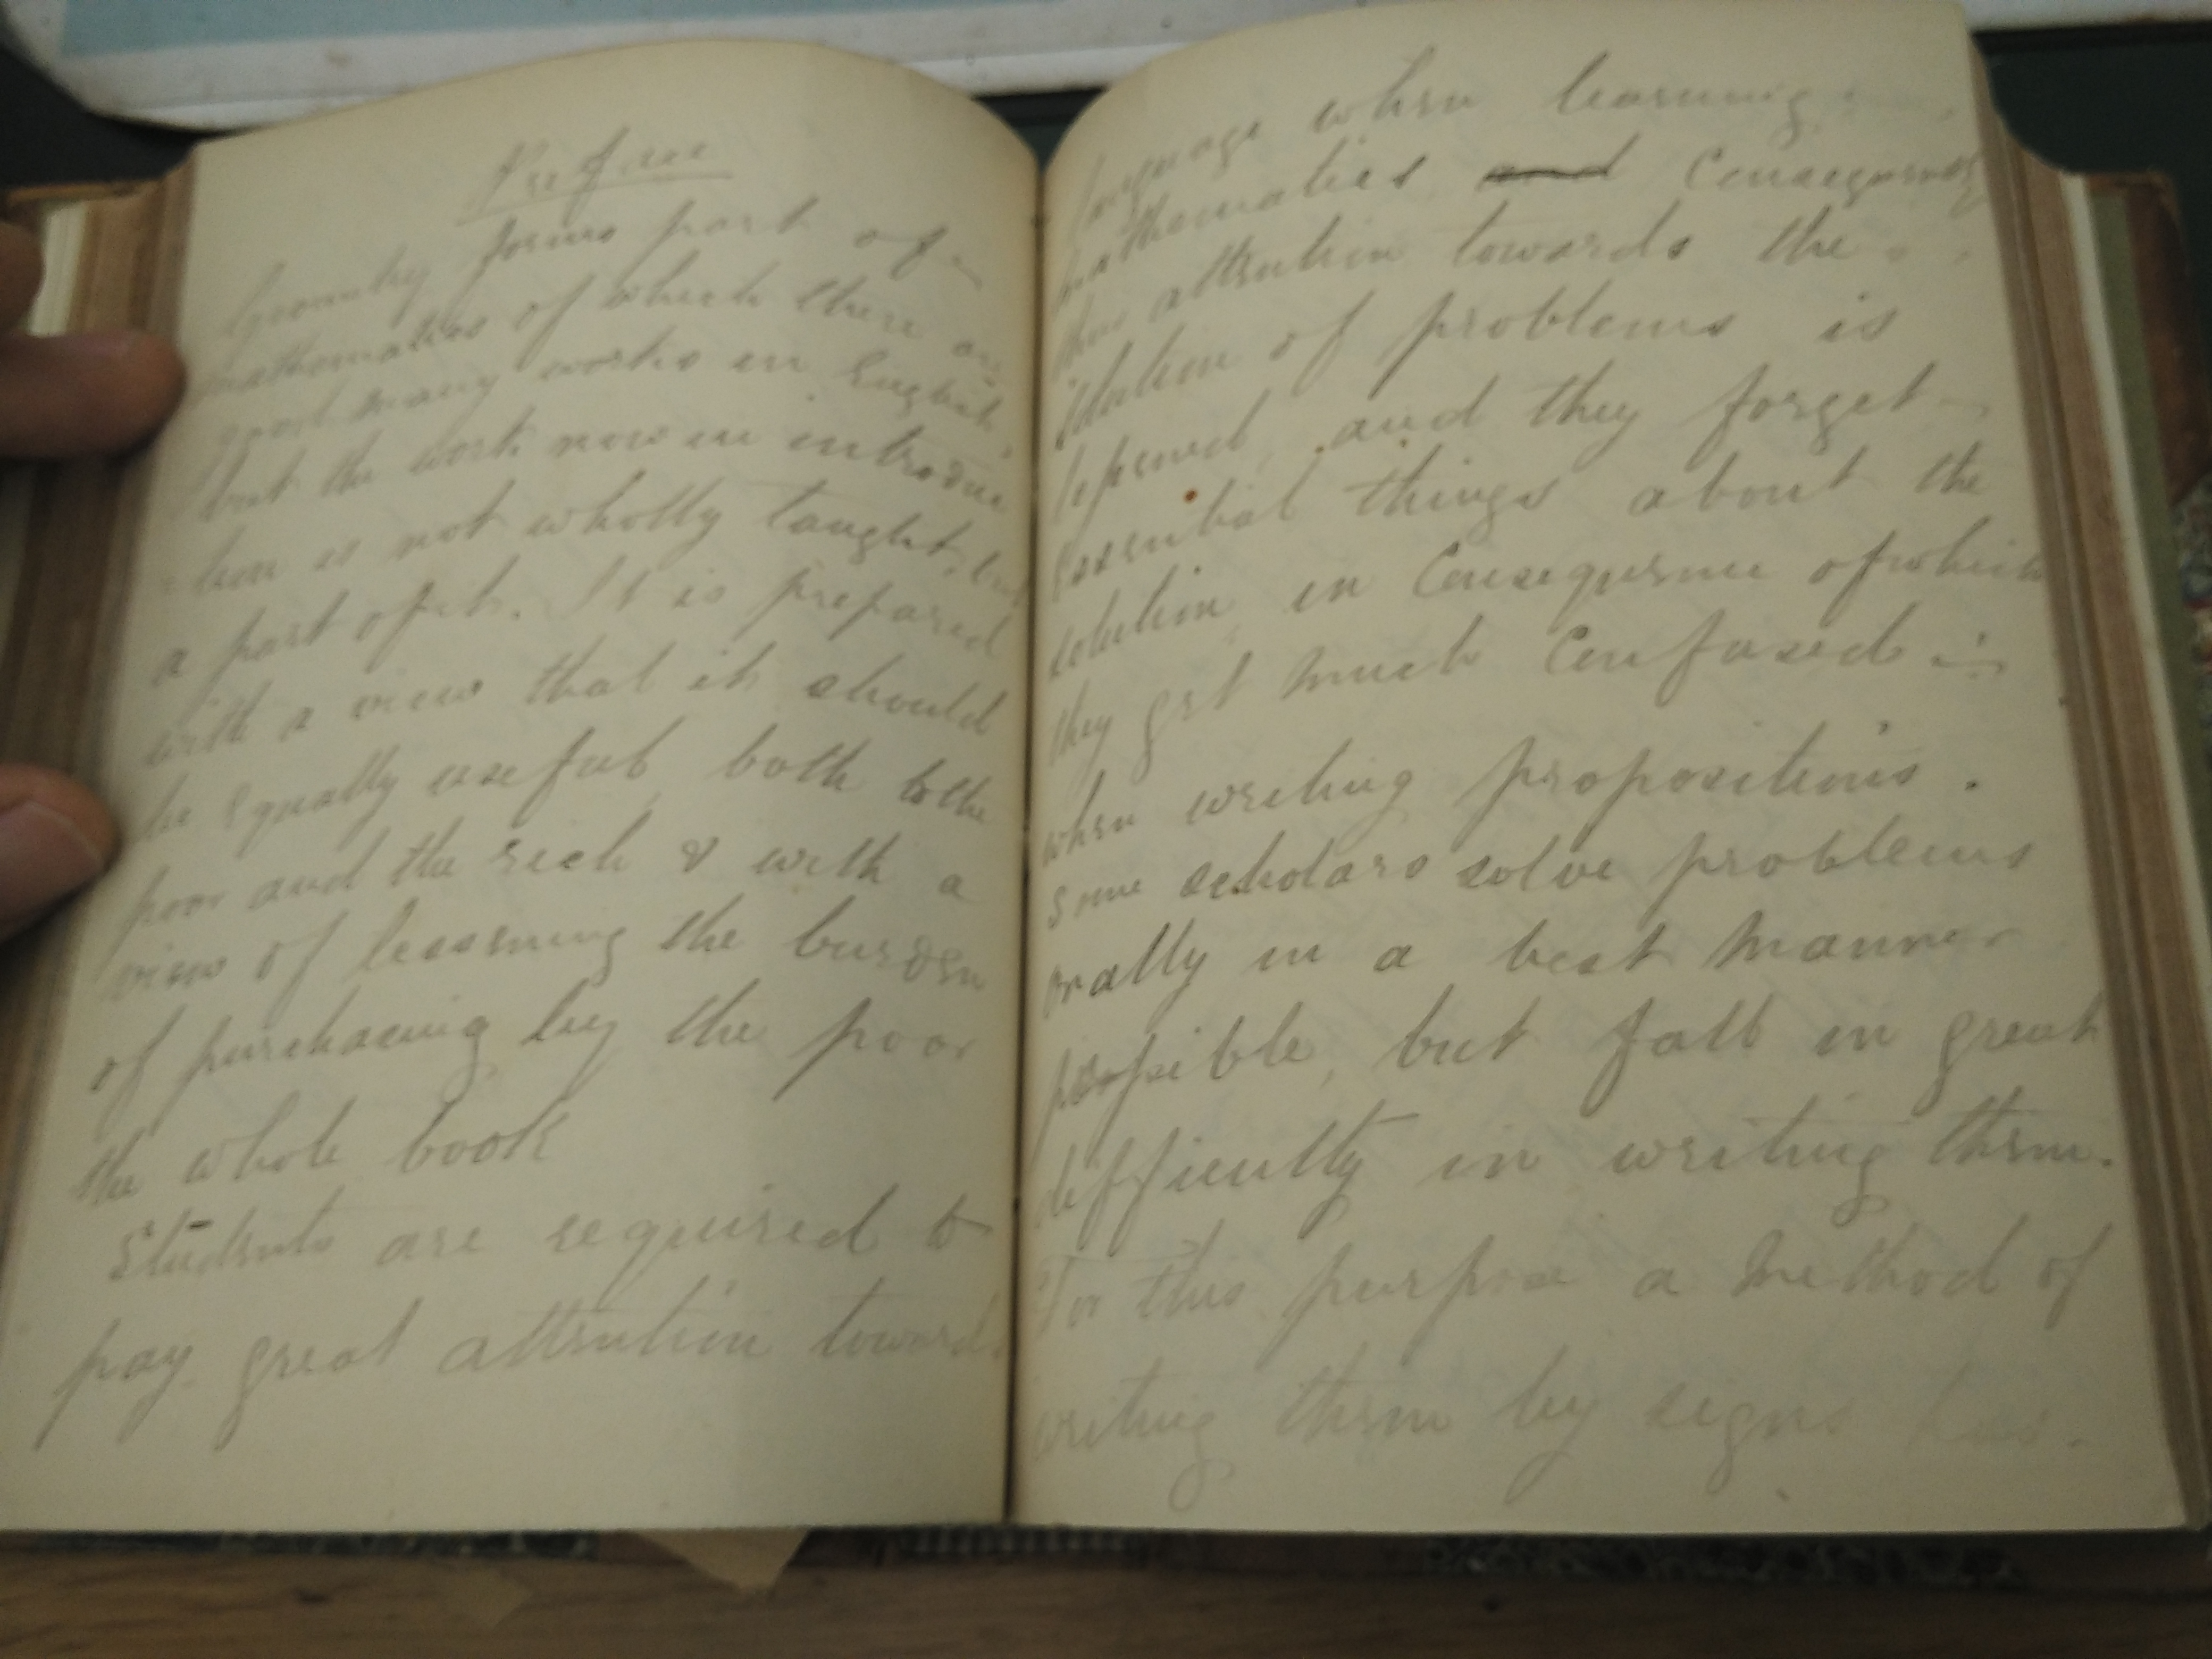 Preface
Geometry forms part of
mathematics of which there are
good many works in English,
but the work now in introduc
-tion is not wholly taught, but
a part of it. It is prepared
with a view that it should
be equally useful both to the
poor and the rich & with a
view of lessening the burden
of purchasing by the poor
the whole book
Students are required to
pay great attention towards
language when learning
mathematics and Consequently
their attention towards the
solution of problems is
lessened and they forget
essential things about the
solution in Consequence of which
they get much Confused
when writing propositions.
Some scholars solve problems
orally in a best manner
possible, but fall in great
difficulty in writing them.
For this purpose a method of
writing them by signs